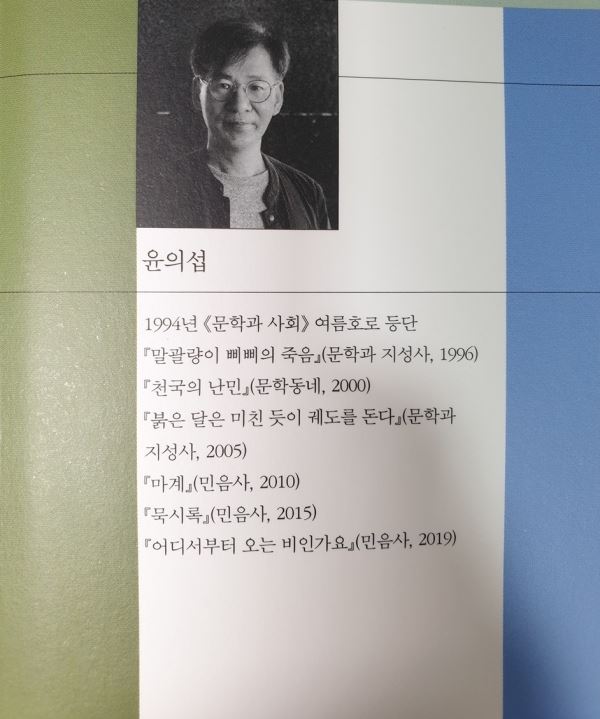 윤의섭
1994년 《문학과 사회》 여름호로 등단
『말괄량이 삐삐의 죽음』(문학과 지성사, 1996)
『천국의 난민』(문학동네, 2000)
『붉은 달은 미친 듯이 궤도를 돈다』(문학과
지성사, 2005)
『마계』(민음사, 2010)
『묵시록』(민음사, 2015)
『어디서부터 오는 비인가요』(민음사, 2019)